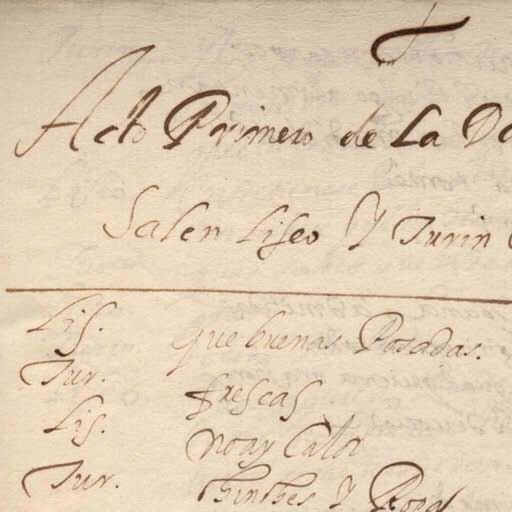 Acto Primero de La Da
Salen Liseo Y Turin
Lis. que buenas Posadas.
Tur. frescas
Lis. no ay Calor
Tur. chinches Y Ropa